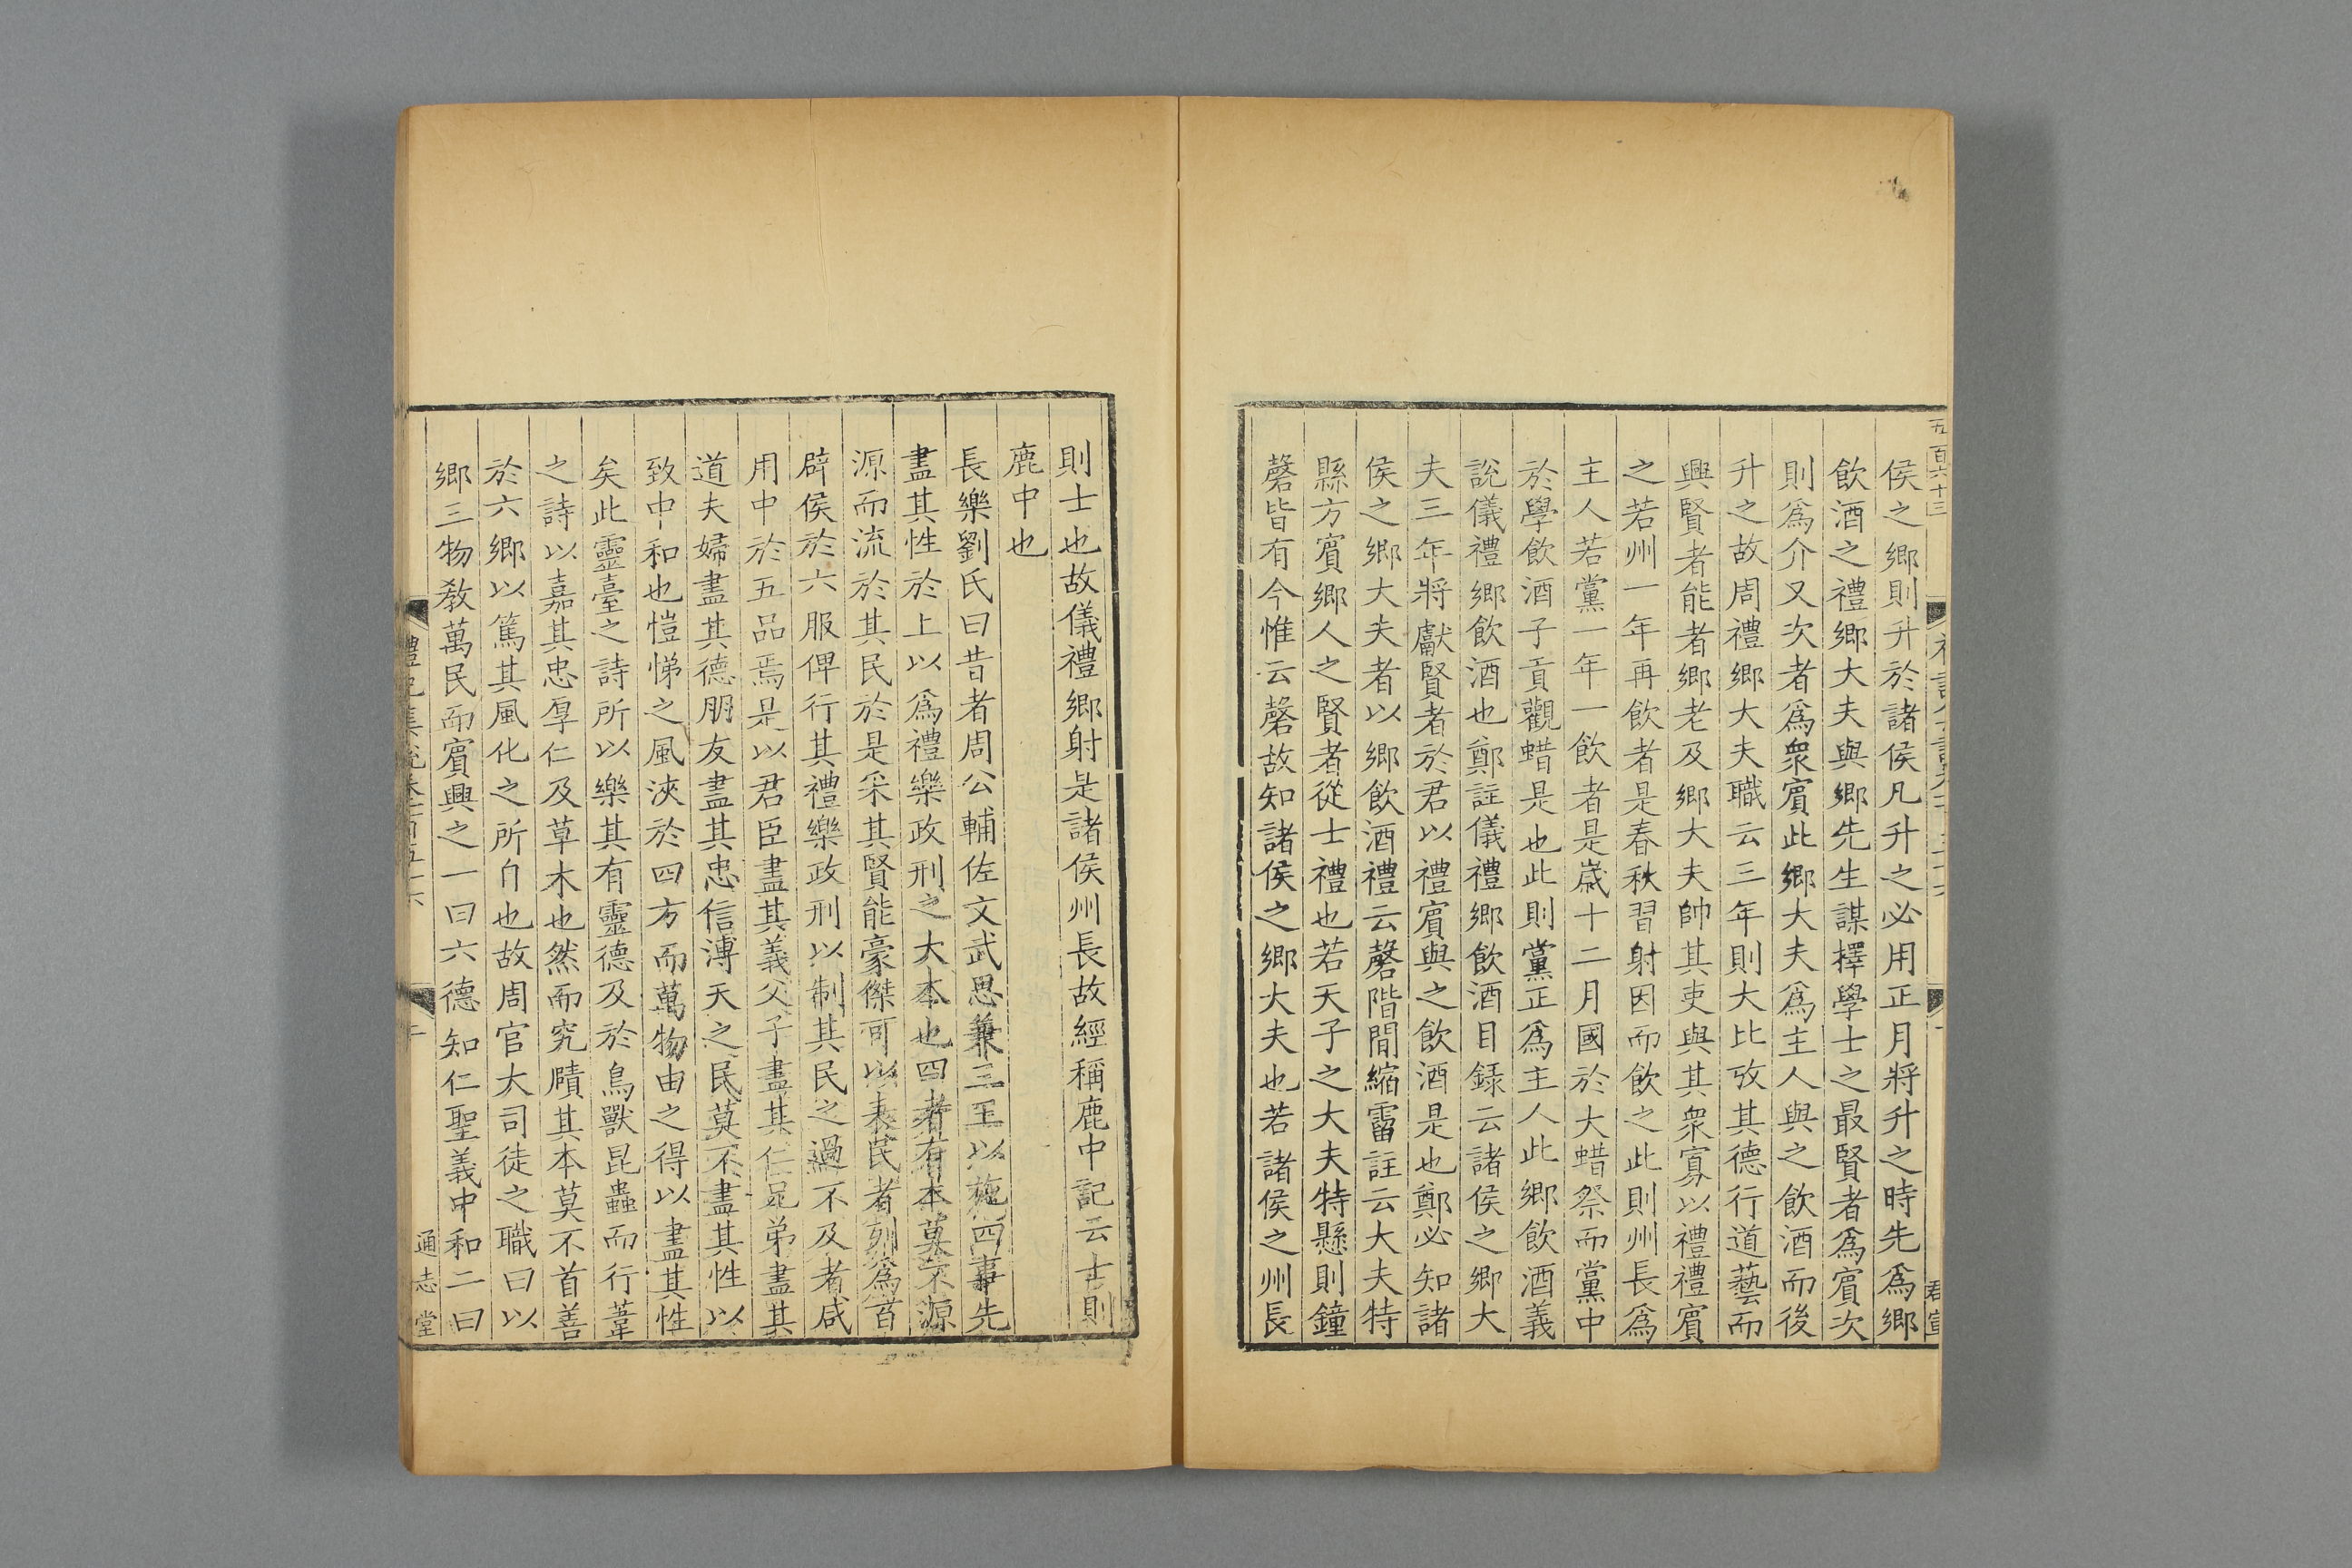 五百六十三
君宣
侯之鄉則升於諸侯凡升之必用正月將升之時先爲鄉
飲酒之禮鄉大夫與鄉先生謀擇學士之最賢者爲賔次
則爲介又次者爲衆賔此鄉大夫爲主人與之飲酒而後
升之故周禮鄉大夫職云三年則大比攷其德行道藝而
興賢者能者鄉老及鄉大夫帥其吏與其衆寡以禮禮賔
之若州一年再飲者是春秋習射因而飲之此則州長爲
主人若黨一年一飲者是歲十二月國於大蜡祭而黨中
於學飲酒子貢觀蜡是也此則黨正爲主人此鄉飲酒義
說儀禮鄉飲酒也鄭註儀禮鄉飲酒目録云諸侯之鄉大
夫三年將獻賢者於君以禮賔與之飲酒是也鄭必知諸
侯之鄉大夫者以鄉飲酒禮云磬階間縮霤註云大夫特
縣方賔鄉人之賢者從士禮也若天子之大夫特懸則鐘
磬皆有今惟云磬故知諸侯之鄉大夫也若諸侯之州長
則士也故儀禮鄉射是諸侯州長故經稱鹿中記云士則
鹿中也
長樂劉氏曰昔者周公輔佐文武思兼三王以施四事先
盡其性於上以爲禮樂政刑之大本也四者有本莫不源
源而流於其民於是采其賢能豪傑可以表民者列爲百
辟侯於六服俾行其禮樂政刑以制其民之過不及者咸
用中於五品焉是以君臣盡其義父子盡其仁兄弟盡其
道夫婦盡其德朋友盡其忠信溥天之民莫不盡其性以
致中和也愷悌之風浹於四方而萬物由之得以盡其性
矣此靈臺之詩所以樂其有靈德及於鳥獸昆蟲而行葦
之詩以嘉其忠厚仁及草木也然而究賾其本莫不首善
於六鄉以篤其風化之所自也故周官大司徒之職曰以
鄉三物教萬民而賔興之一曰六德知仁聖義中和二曰
禮記集說卷
通志堂